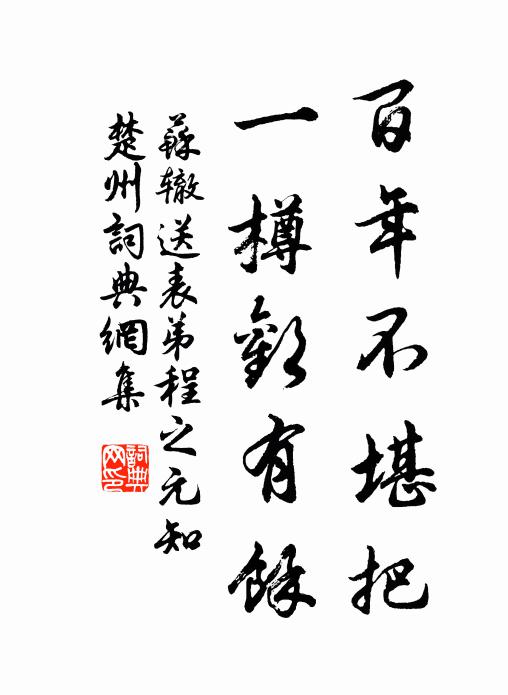 百年不堪把
一樽歡有餘
蘇轍送表弟程之元知
楚州詞典網集
詞典
网印